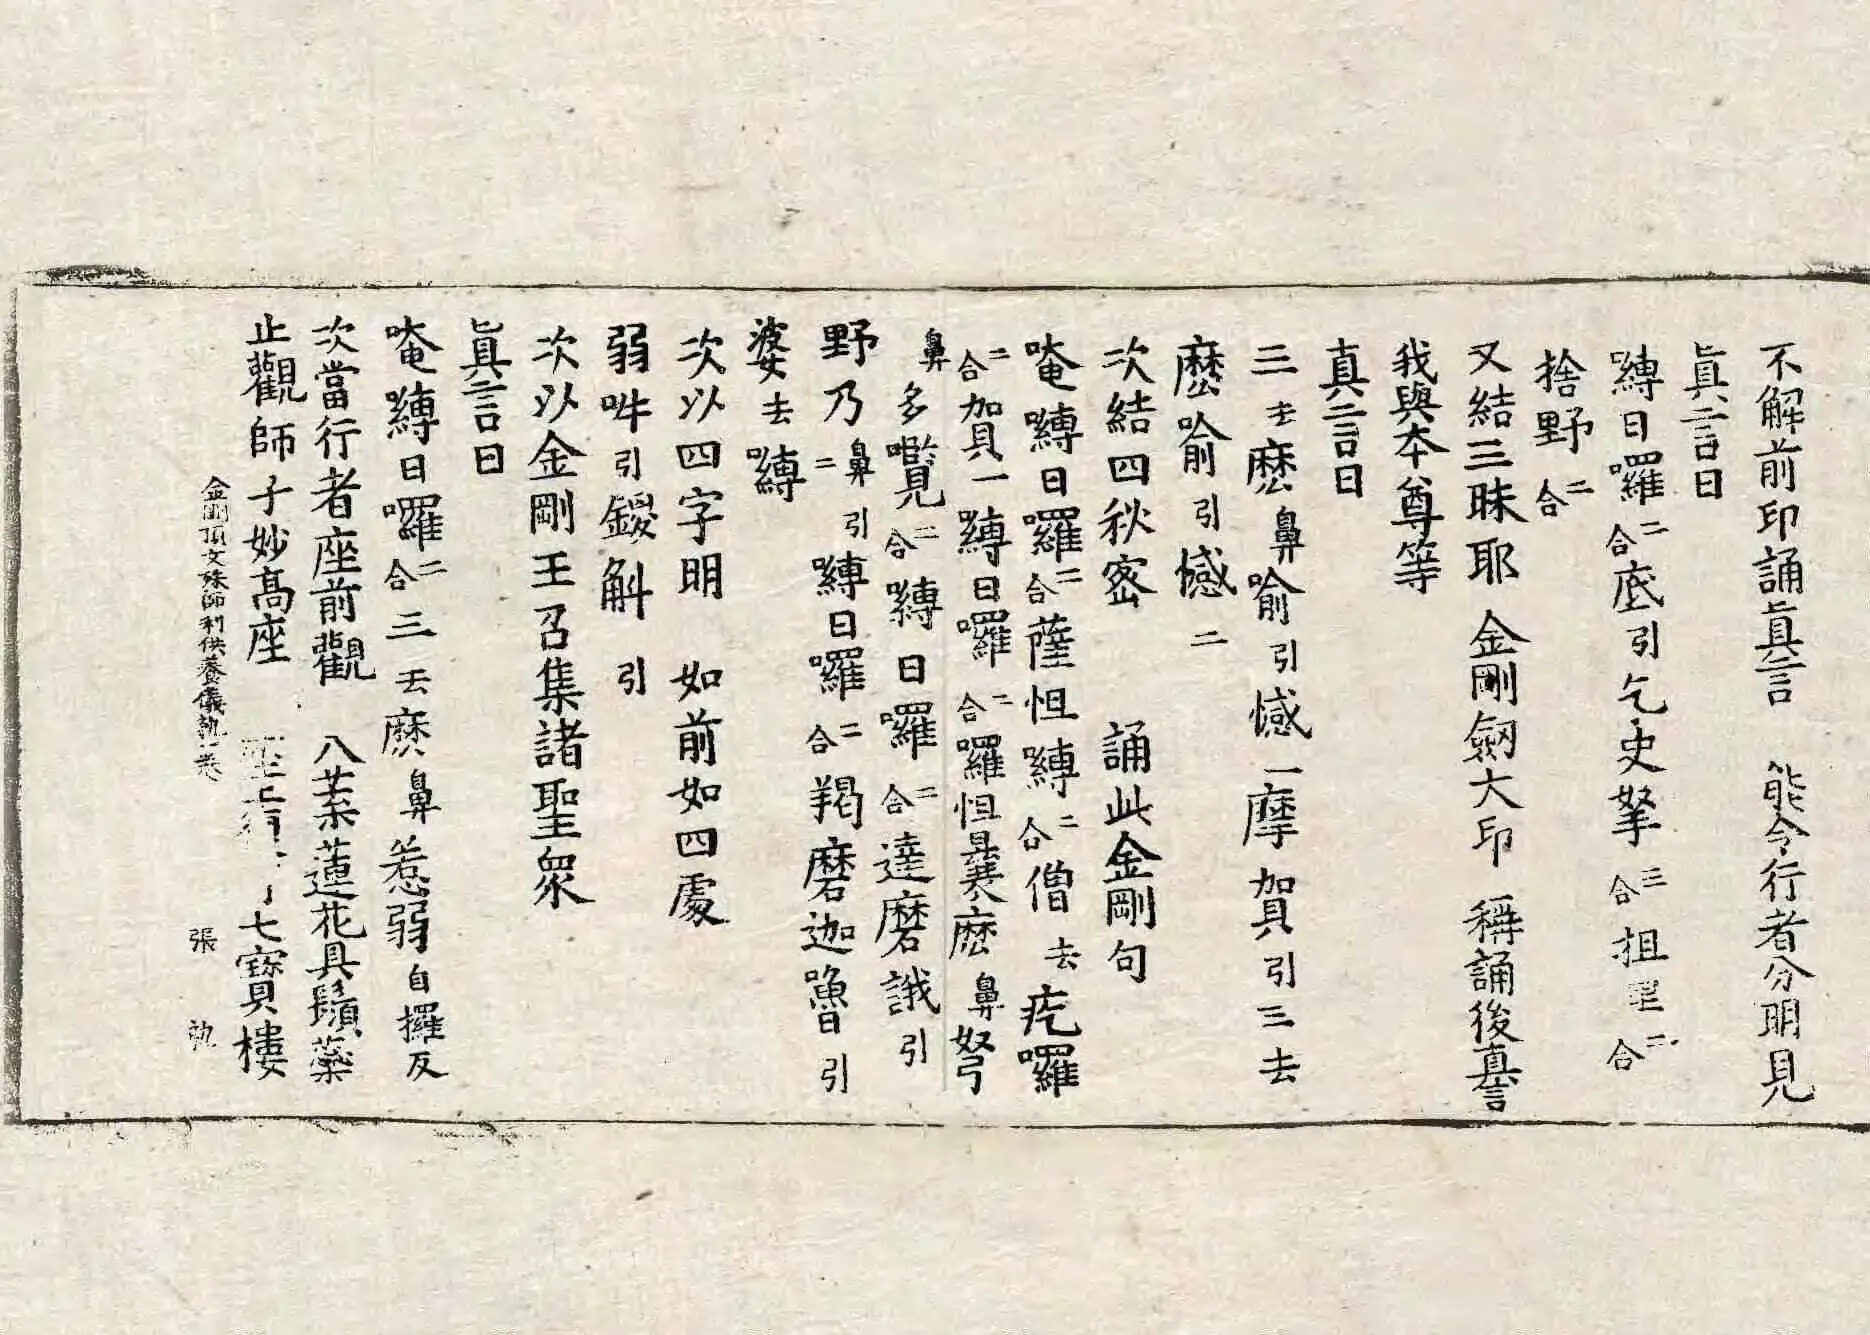 不解前印誦眞言　能令行者分明見
眞言曰
嚩日囉二合底引乞史拏三合担二合
捨野二合
又結三昧耶　金剛劒大印　稱誦後真言
我與本尊等
真言曰
三去麽鼻喻引憾一摩賀引三去
麽喻引憾二
次結四秋密　誦此金剛句
唵嚩日囉二合薩怛嚩二合僧去疙囉
二合賀一嚩日囉二合囉怛曩麽鼻弩
鼻多㘕二合嚩日囉二合達磨誐引
野乃鼻引二嚩日囉二合羯磨迦嚕引
婆去嚩
次以四字明　如前如四處
弱吽引鑁斛引
次以金剛王召集諸聖衆
眞言曰
唵嚩日囉二合三去麽鼻惹弱自攞反
次當行者座前觀　八葉蓮花具鬚蘂
止觀師子妙髙座　七寶樓
金剛頂文殊師利供養儀軌一卷　張